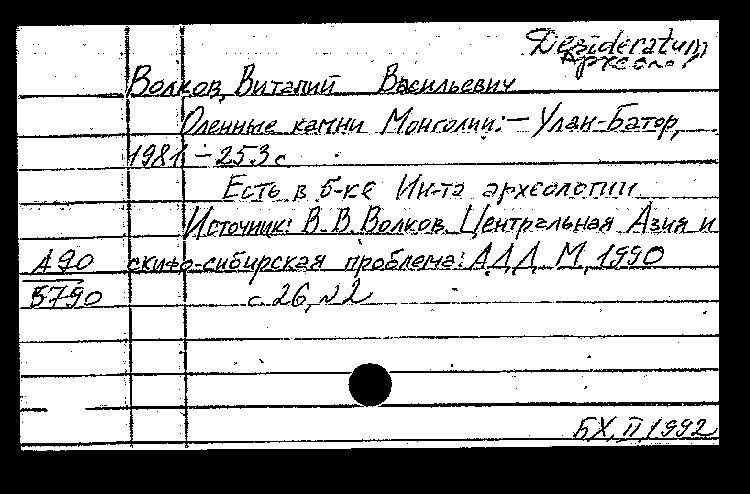 Desideratum
Археол.
Волков, Виталий Васильевич
Оленные камни Монголии. — Улан-Батор,
1981 – 253 с
Есть в б-ке Ин-та археологии
Источник: В.В. Волков. Центральная Азия и
А 90 скифо-сибирская проблема: АДД М, 1990
5790 с. 26, №2
БХ, II, 1992